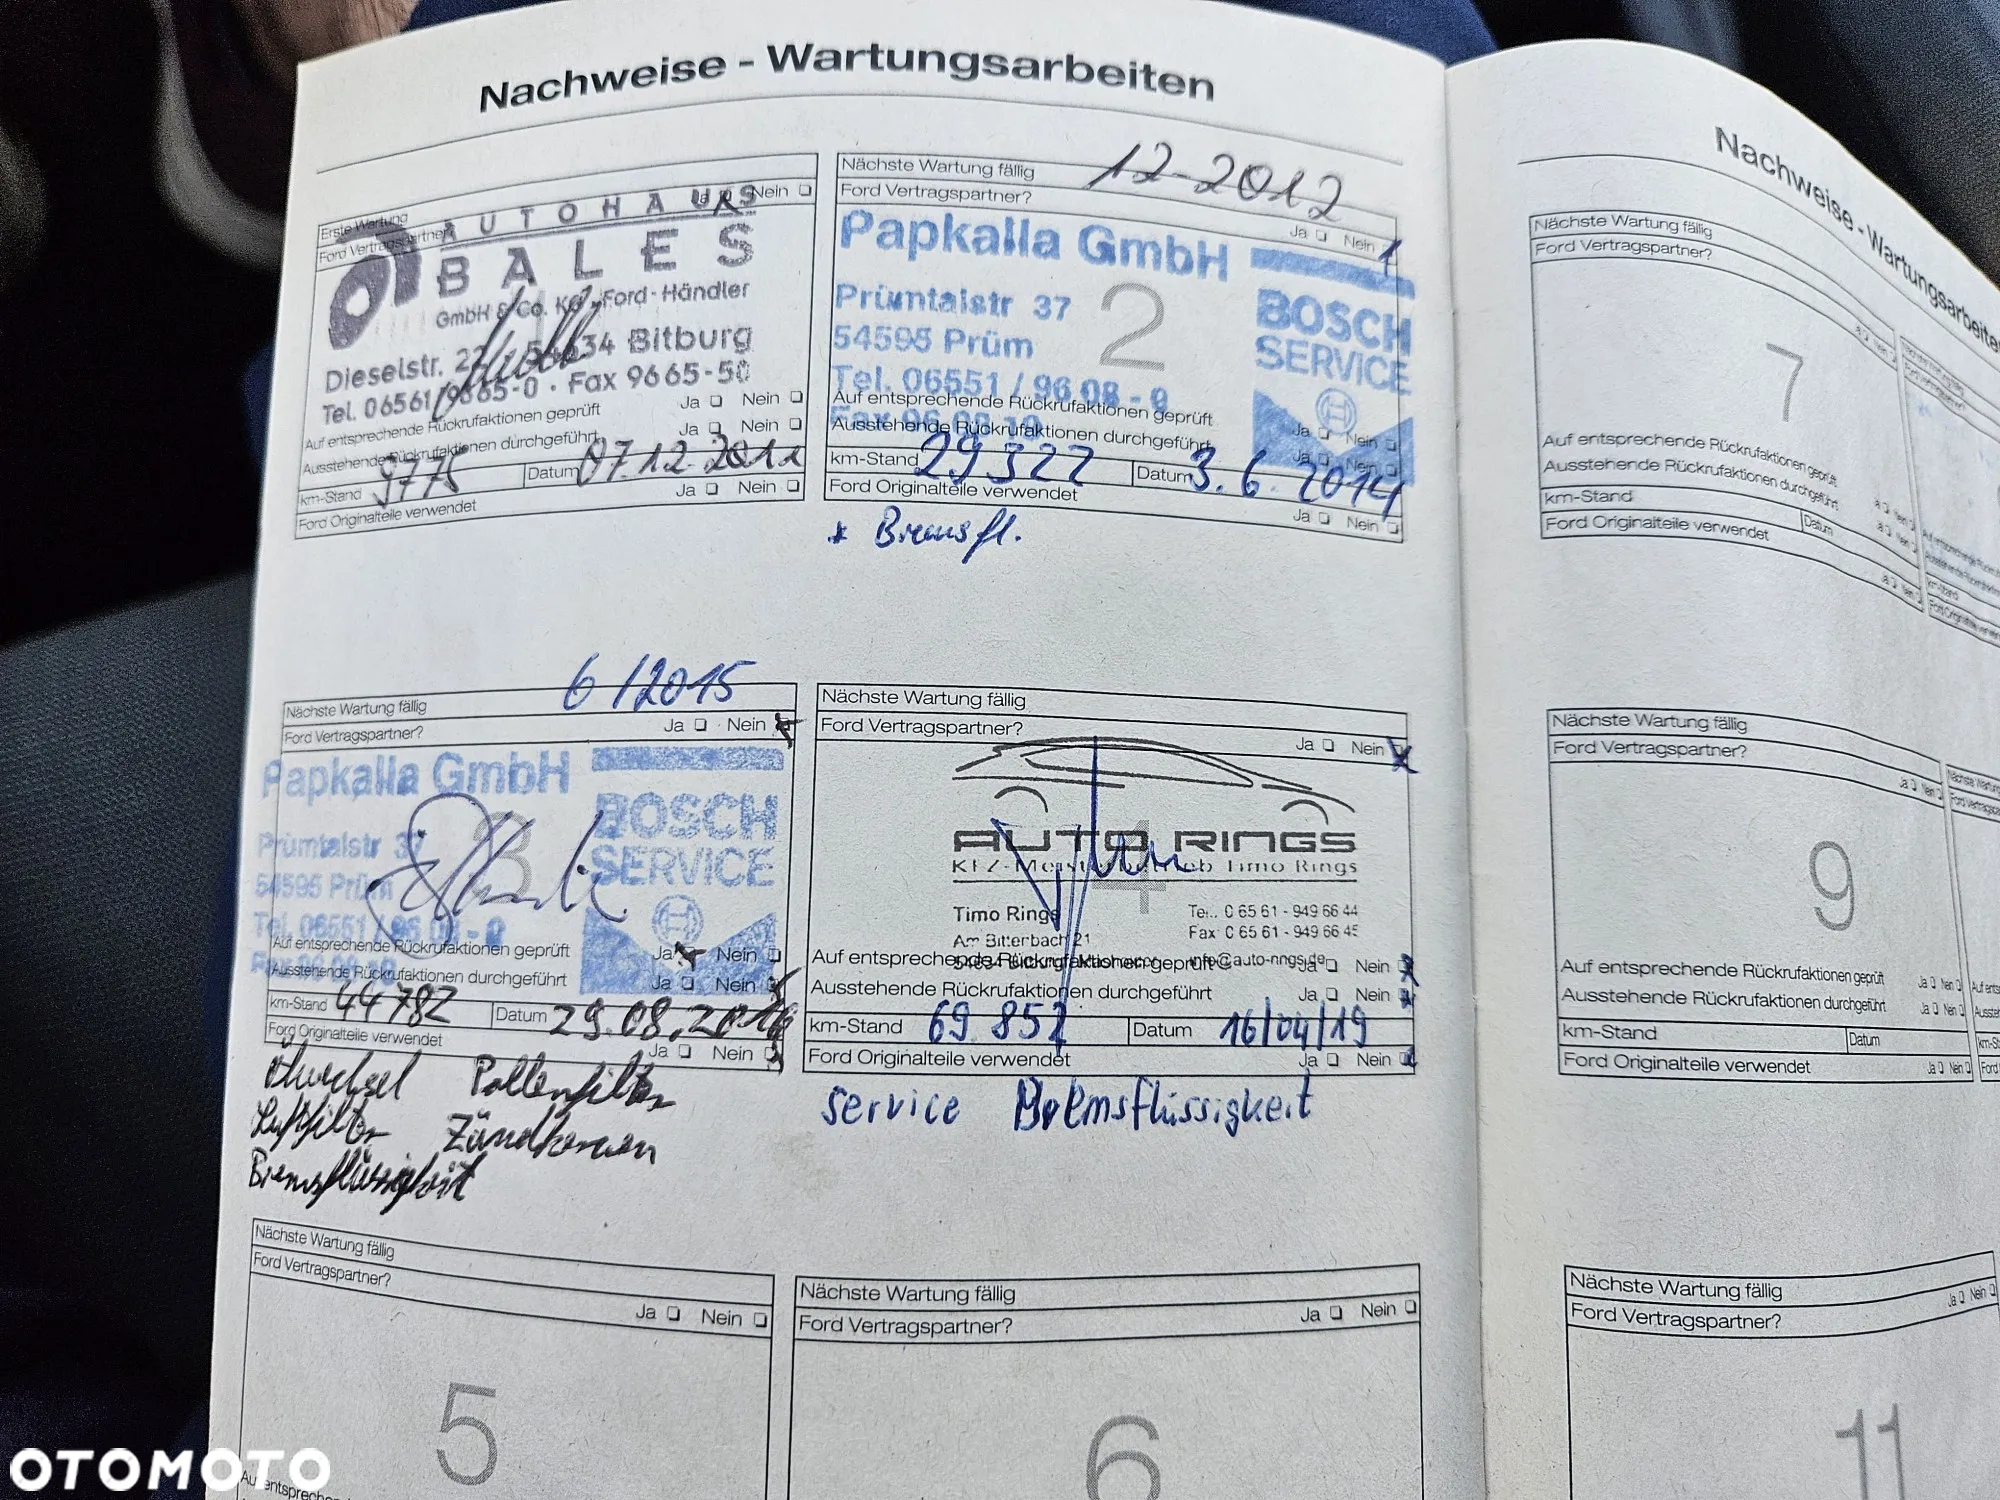 Nachweise - Wartungsarbeiten
Erste Wartung
Ford Vertragspartner
Nein
AUTOHAUS
BALES
GmbH & Co. KG · Ford-Händler
Dieselstr. 54634 Bitburg
Tel. 06561/9665-0 · Fax 9665-50
Auf entsprechende Rückrufaktionen geprüft Ja Nein
Ausstehende Rückrufaktionen durchgeführt Ja Nein
km-Stand 9775 Datum 07.12.2011
Ford Originalteile verwendet Ja Nein
Nächste Wartung fällig 12-2012
Ford Vertragspartner? Ja Nein
Papkalla GmbH
Prümtalstr 37
54595 Prüm
Tel. 06551/96 08-0
Fax 96 08 10
BOSCH
SERVICE
2
Auf entsprechende Rückrufaktionen geprüft Ja Nein
Ausstehende Rückrufaktionen durchgeführt Ja Nein
km-Stand 29322 Datum 3.6.2014
Ford Originalteile verwendet Ja Nein
* Bremsfl.
Nächste Wartung fällig 6/2015
Ford Vertragspartner? Ja Nein
Papkalla GmbH
Prümtalstr 37
54595 Prüm
Tel. 06551/96 08-0
Fax 96 08 10
BOSCH
SERVICE
3
Auf entsprechende Rückrufaktionen geprüft Ja Nein
Ausstehende Rückrufaktionen durchgeführt Ja Nein
km-Stand 44782 Datum 29.08.2016
Ford Originalteile verwendet Ja Nein
Ölwechsel Pollenfilter
Luftfilter Zündkerzen
Bremsflüssigkeit
Nächste Wartung fällig
Ford Vertragspartner? Ja Nein
AUTO RINGS
KFZ-Meisterbetrieb Timo Rings
4
Timo Rings Tel. 0 65 61 - 949 66 44
Am Bitterbach 21 Fax 0 65 61 - 949 66 45
info@auto-rings.de
Auf entsprechende Rückrufaktionen geprüft Ja Nein
Ausstehende Rückrufaktionen durchgeführt Ja Nein
km-Stand 69 852 Datum 16/04/19
Ford Originalteile verwendet Ja Nein
service Bremsflüssigkeit
Nächste Wartung fällig
Ford Vertragspartner?
Ja Nein
5
Nächste Wartung fällig
Ford Vertragspartner? Ja Nein
6
Nachweise - Wartungsarbeiten
Nächste Wartung fällig
Ford Vertragspartner?
Ja Nein
7
Auf entsprechende Rückrufaktionen geprüft
Ausstehende Rückrufaktionen durchgeführt
km-Stand Datum
Ford Originalteile verwendet
Ja Nein
Nächste Wartung fällig
Ford Vertragspartner?
Ja Nein
9
Auf entsprechende Rückrufaktionen geprüft Ja Nein
Ausstehende Rückrufaktionen durchgeführt Ja Nein
km-Stand Datum
Ford Originalteile verwendet Ja Nein
Nächste Wartung fällig
Ford Vertragspartner? Ja Nein
11
OTOMOTO